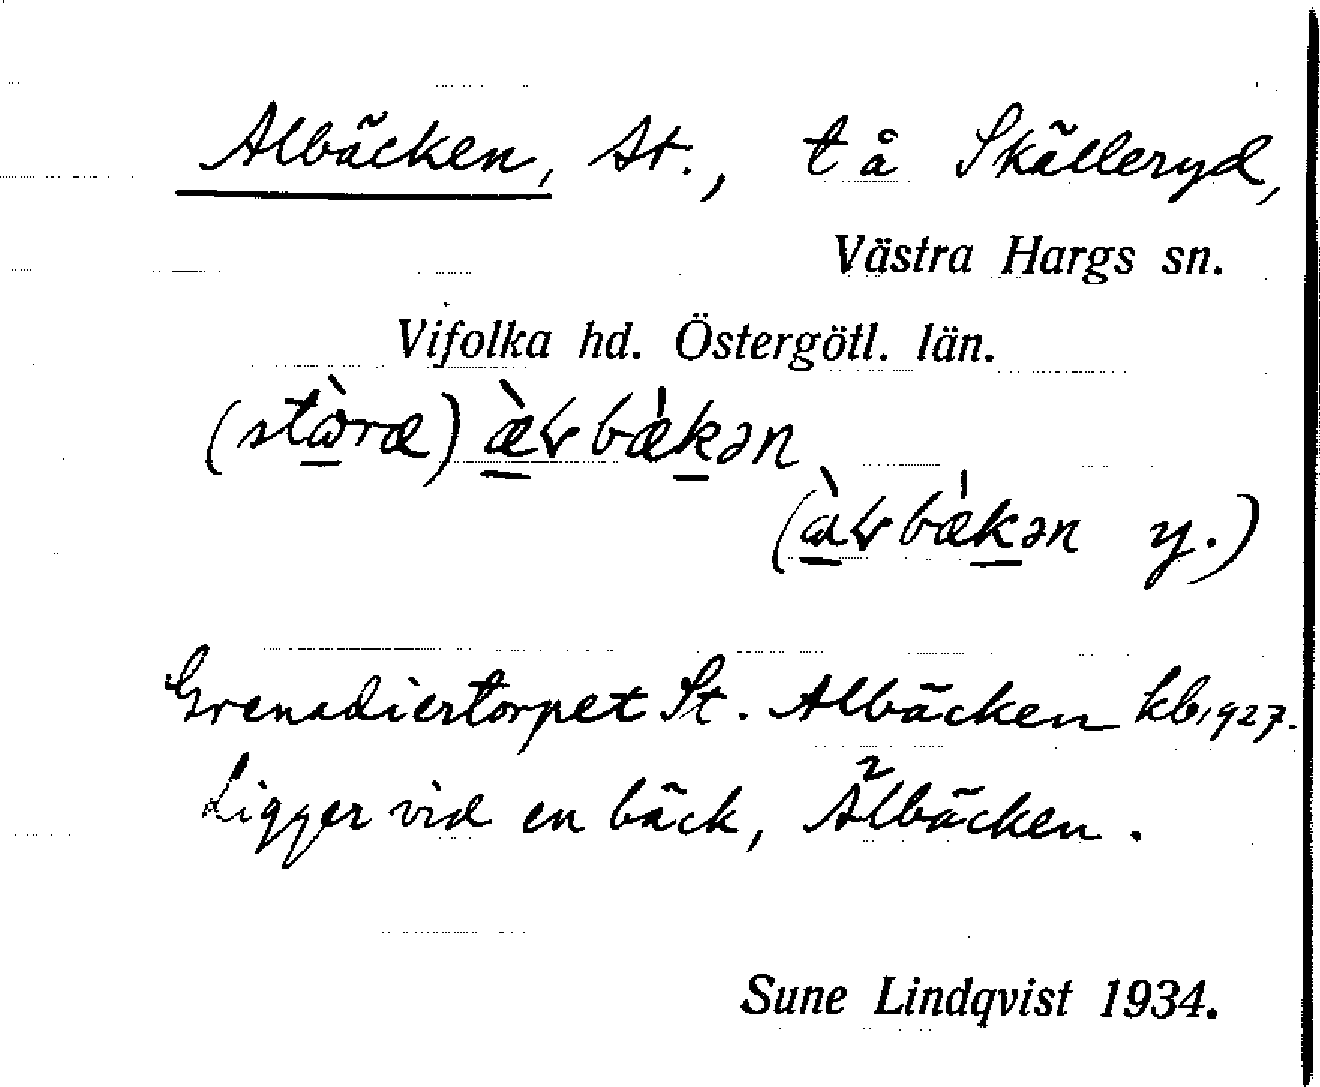 Albäcken, St., t å Skälleryd,
Västra Hargs sn.
Vifolka hd. Östergötl. län.
(stɷ̀ræ) æ̀ɽbǽkən
(àɽbǽkən y.)
Grenadiertorpet St. Albäcken kb 1927.
Ligger vid en bäck, Älbäcken.
Sune Lindqvist 1934.